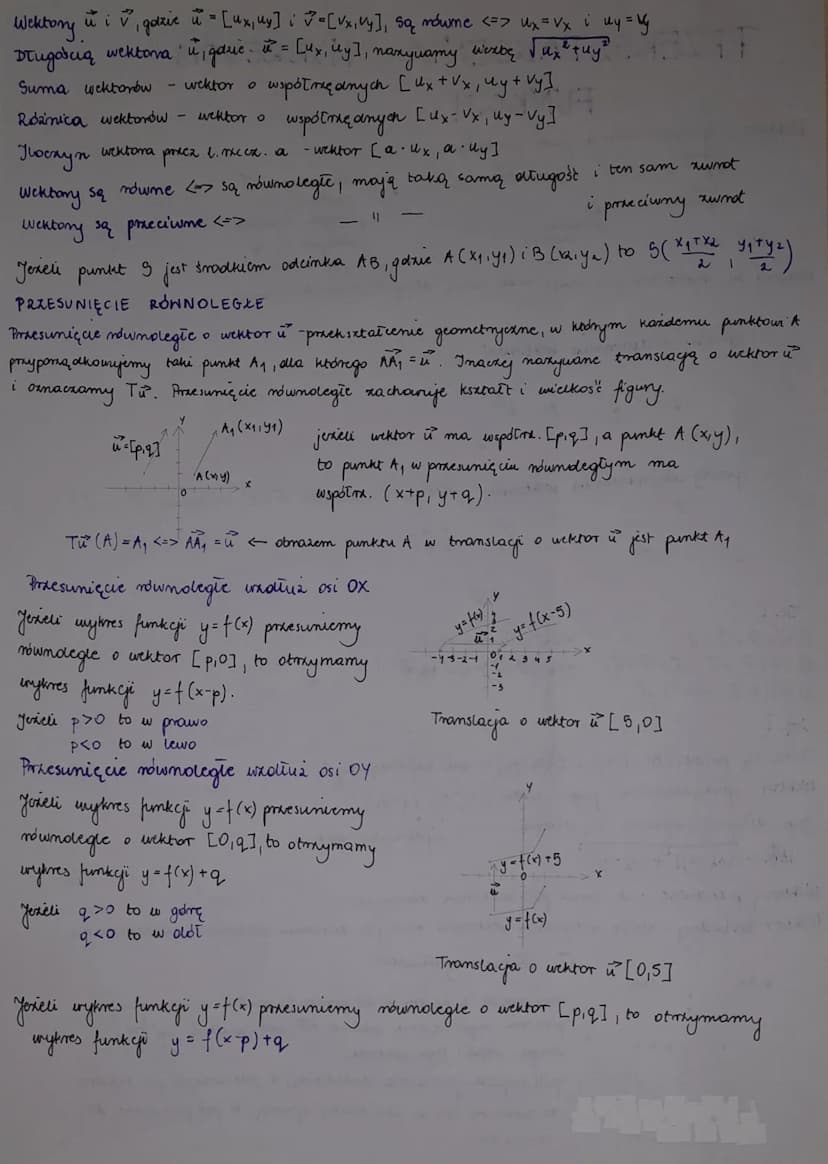 Wektory u⃗ i v⃗, gdzie u⃗ = [ux, uy] i v⃗ = [vx, vy], są równe <=> ux = vx i uy = vy
Długością wektora u⃗, gdzie u⃗ = [ux, uy], nazywamy liczbę √ux² + uy²
Suma wektorów - wektor o współrzędnych [ux + vx, uy + vy]
Różnica wektorów - wektor o współrzędnych [ux - vx, uy - vy]
Iloczyn wektora przez l. rzecz. a - wektor [a · ux, a · uy]
Wektory są równe <=> są równoległe, mają taką samą długość i ten sam zwrot
Wektory są przeciwne <=> — " — i przeciwny zwrot
Jeżeli punkt S jest środkiem odcinka AB, gdzie A(x1, y1) i B(x2, y2) to S(x1+x2/2, y1+y2/2)
PRZESUNIĘCIE RÓWNOLEGŁE
Przesunięcie równoległe o wektor u⃗ - przekształcenie geometryczne, w którym każdemu punktowi A
przyporządkowujemy taki punkt A1, dla którego AA1⃗ = u⃗. Inaczej nazywane translacją o wektor u⃗
i oznaczamy Tu⃗. Przesunięcie równoległe zachowuje kształt i wielkość figury.
u⃗=[p,q]
y
A1(x1, y1)
A(x,y)
x
0
jeżeli wektor u⃗ ma współrz. [p,q], a punkt A(x,y),
to punkt A1 w przesunięciu równoległym ma
współrz. (x+p, y+q).
Tu⃗(A) = A1 <=> AA1⃗ = u⃗ ← obrazem punktu A w translacji o wektor u⃗ jest punkt A1
Przesunięcie równoległe wzdłuż osi OX
Jeżeli wykres funkcji y=f(x) przesuniemy
równolegle o wektor [p,0], to otrzymamy
wykres funkcji y=f(x-p).
Jeżeli p>0 to w prawo
p<0 to w lewo
y
y=f(x)
y=f(x-5)
u⃗
3
2
1
-4 -3 -2 -1 0 1 2 3 4 5 x
-1
-2
-3
Translacja o wektor u⃗ [5,0]
Przesunięcie równoległe wzdłuż osi OY
Jeżeli wykres funkcji y=f(x) przesuniemy
równolegle o wektor [0,q], to otrzymamy
wykres funkcji y=f(x)+q
Jeżeli q>0 to w górę
q<0 to w dół
y
y=f(x)+5
0
x
u⃗
y=f(x)
Translacja o wektor u⃗ [0,5]
Jeżeli wykres funkcji y=f(x) przesuniemy równolegle o wektor [p,q], to otrzymamy
wykres funkcji y = f(x-p)+q